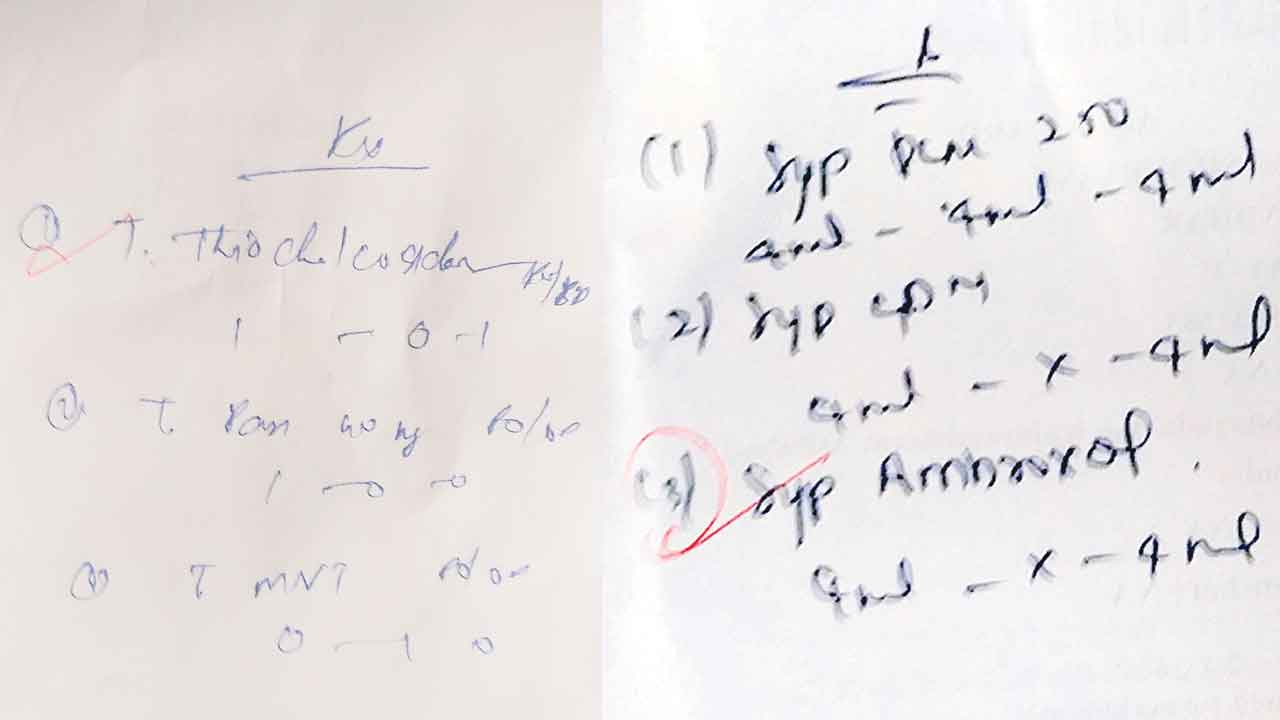 Rx
① T. Thiocholcosidom
1 - 0 - 1
② T. Pan 40 mg PO/OD
1 - 0 - 0
T MVT PO OD
0 - 1 0
(1) Syp PCM 250
4ml - 4ml - 4ml
(2) Syp CPM
4ml - x - 4ml
(3) Syp Ambroxol.
4ml - x - 4ml